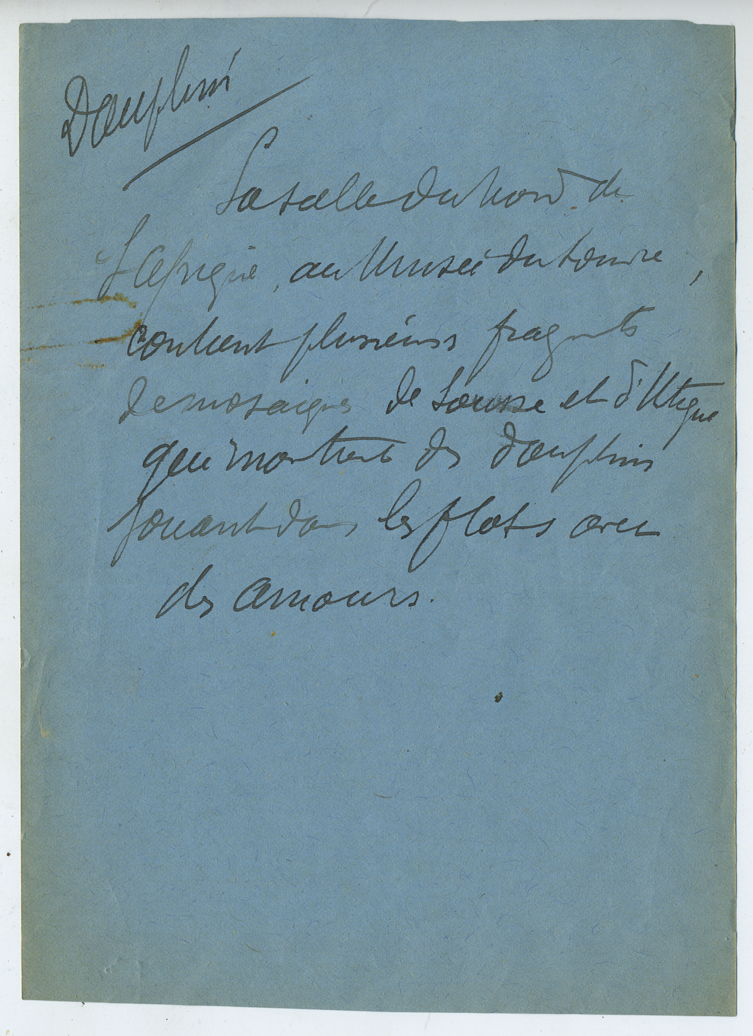 Dauphins
La salle du Nord de
l'Afrique, au Musée du Louvre,
contient plusieurs fragments
de mosaïques de Sousse et d'Utique
qui montrent des dauphins
jouant dans les flots avec
des amours.